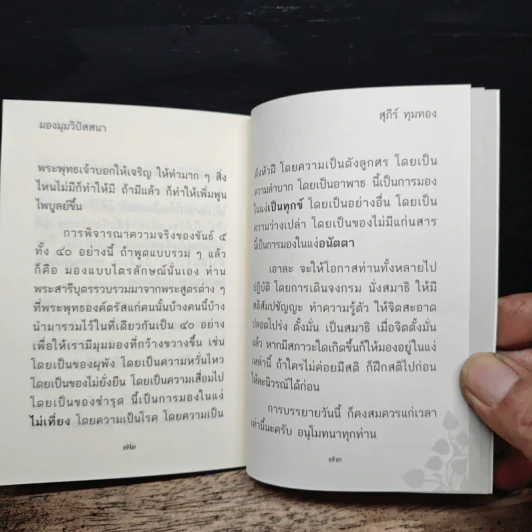 มองมุมวิปัสสนา
พระพุทธเจ้าบอกให้เจริญ ให้ทำมาก ๆ สิ่ง
ไหนไม่มีก็ทำให้มี ถ้ามีแล้ว ก็ทำให้เพิ่มพูน
ไพบูลย์ขึ้น
การพิจารณาความจริงของขันธ์ ๕
ทั้ง ๔๐ อย่างนี้ ถ้าพูดแบบรวม ๆ แล้ว
ก็คือ มองแบบไตรลักษณ์นั่นเอง ท่าน
พระสารีบุตรรวบรวมมาจากพระสูตรต่าง ๆ
ที่พระพุทธองค์ตรัสแก่คนนั้นบ้างคนนี้บ้าง
นำมารวมไว้ในที่เดียวกันเป็น ๔๐ อย่าง
เพื่อให้เรามีมุมมองที่กว้างขวางขึ้น เช่น
โดยเป็นของผุพัง โดยเป็นความหวั่นไหว
โดยเป็นของไม่ยั่งยืน โดยเป็นความเสื่อมไป
โดยเป็นของชำรุด นี้เป็นการมองในแง่
ไม่เที่ยง โดยความเป็นโรค โดยความเป็น
๗๒
สุภีร์ ทุมทอง
ดังหัวฝี โดยความเป็นดังลูกศร โดยเป็น
ความลำบาก โดยเป็นอาพาธ นี้เป็นการมอง
ในแง่เป็นทุกข์ โดยเป็นอย่างอื่น โดยเป็น
ความว่างเปล่า โดยเป็นของไม่มีแก่นสาร
นี้เป็นการมองในแง่อนัตตา
เอาละ จะให้โอกาสท่านทั้งหลายไป
ปฏิบัติ โดยการเดินจงกรม นั่งสมาธิ ให้มี
สติสัมปชัญญะ ทำความรู้ตัว ให้จิตสะอาด
ปลอดโปร่ง ตั้งมั่น เป็นสมาธิ เมื่อจิตตั้งมั่น
แล้ว หากมีสภาวะใดเกิดขึ้นก็ให้มองอยู่ในแง่
เหล่านี้ ถ้าใครไม่ค่อยมีสติ ก็ฝึกสติไปก่อน
ให้ละนิวรณ์ได้ก่อน
การบรรยายวันนี้ ก็คงสมควรแก่เวลา
เท่านี้นะครับ อนุโมทนาทุกท่าน
๗๓